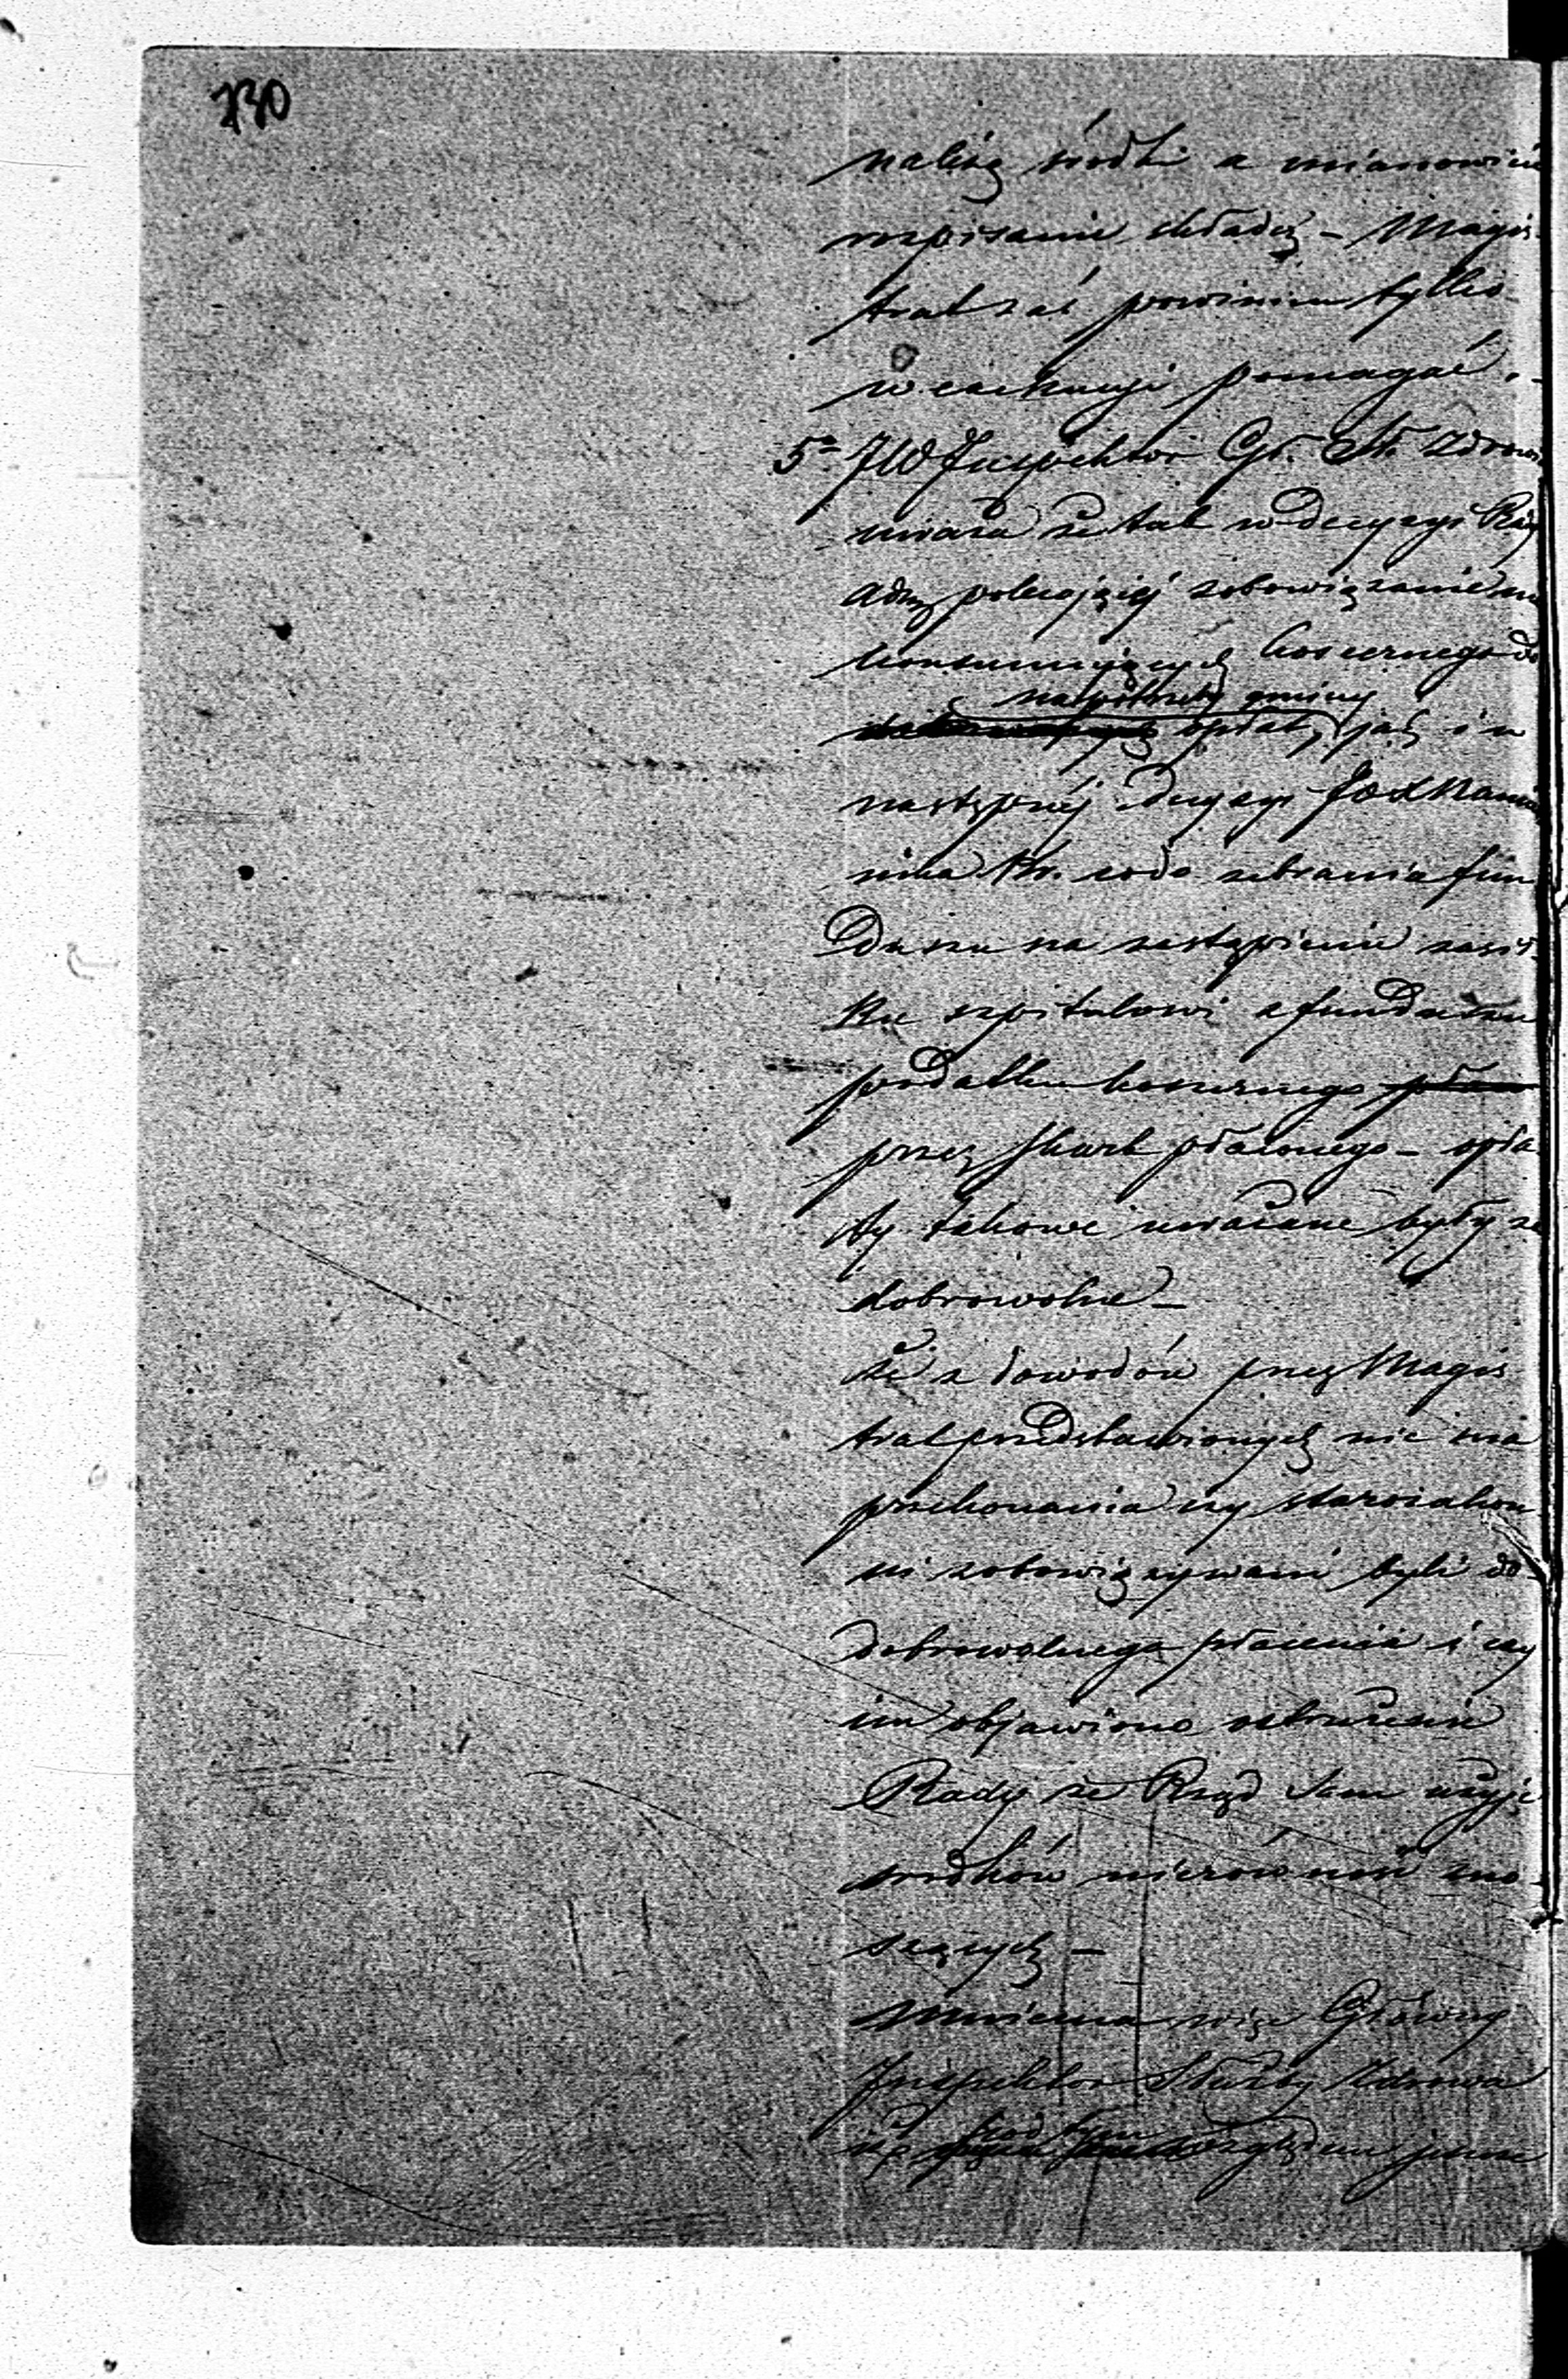 730
należą środki a mianowicie
rozpisanie składeį - Magis-
trat zaś powinien tylko
w exekucyi pomagać. -
5° JW Inspektor Gł. Sł. Zdrow.
uważa że tak w decyzyi Rady
Adm polecającej zobowiązanie
konsumujących koszernego do
na potrzeby gminy
opłat, jak i w
następnej decyzyi JOX Namie
nika Kr. co do zebrania fun
duszu na zastąpienie zasił-
ku szpitalowi z funduszu
podatku koszernego
przez Skarb płaconego - opła
ty takowe uważane były za
dobrowolne -
że z dowodów przez Magis
trat przedstawionych nie ma
przekonania czy starozakon
ni zobowiązywani byli do
dobrowolnego płacenia i czy
im objawiono ostrzeżenie
Rady że Rząd sam użyje
srodków nierówność zno-
szących -
mniema więc Główny
Inspektor Służby Zdrowia
iż pod tym względem jeszcze